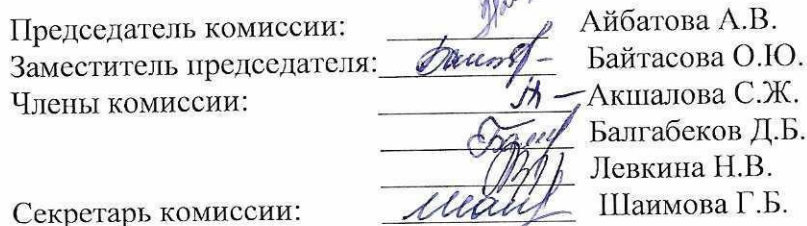 Председатель комиссии: Айбатова А.В.
Заместитель председателя: Байтасова О.Ю.
Члены комиссии: Акшалова С.Ж.
Балгабеков Д.Б.
Левкина Н.В.
Секретарь комиссии: Шаимова Г.Б.